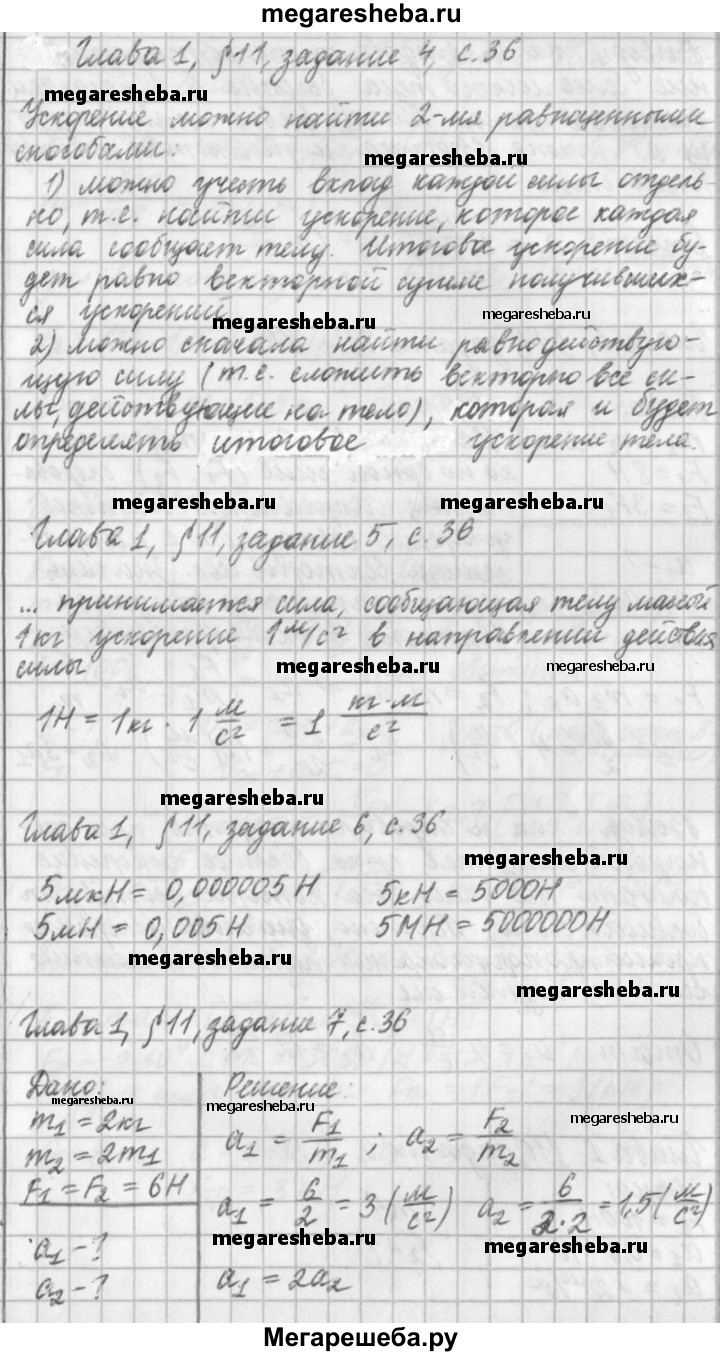 megaresheba.ru
Глава 1, §11, задание 4, с.36
megaresheba.ru
Ускорение можно найти 2-мя равноценными
способами:
megaresheba.ru
1) можно учесть вклад каждой силы отдель-
но, т.е. найти ускорение, которое каждая
сила сообщает телу. Итоговое ускорение бу-
дет равно векторной сумме получивших-
ся ускорений
megaresheba.ru
megaresheba.ru
2) можно сначала найти равнодействую-
щую силу (т.е. сложить векторно все си-
лы, действующие на тело), которая и будет
определять итоговое ускорение тела.
megaresheba.ru
megaresheba.ru
Глава 1, §11, задание 5, с.36
... принимается сила, сообщающая телу массой
1 кг ускорение 1 м/с² в направлении действия
силы
megaresheba.ru
1Н = 1кг · 1 м/с² = 1 кг·м/с²
megaresheba.ru
Глава 1, §11, задание 6, с.36
megaresheba.ru
5мкН = 0,000005Н 5кН = 5000Н
5мН = 0,005Н 5МН = 5000000Н
megaresheba.ru
Глава 1, §11, задание 7, с.36
Дано: Решение:
megaresheba.ru
megaresheba.ru
megaresheba.ru
m₁ = 2кг a₁ = F₁/m₁ ; a₂ = F₂/m₂
m₂ = 2m₁
F₁ = F₂ = 6Н a₁ = 6/2 = 3 (м/с²) a₂ = 6/2·2 = 1,5 (м/с²)
megaresheba.ru
megaresheba.ru
a₁ - ?
a₂ - ? a₁ = 2a₂
Мегарешеба.ру